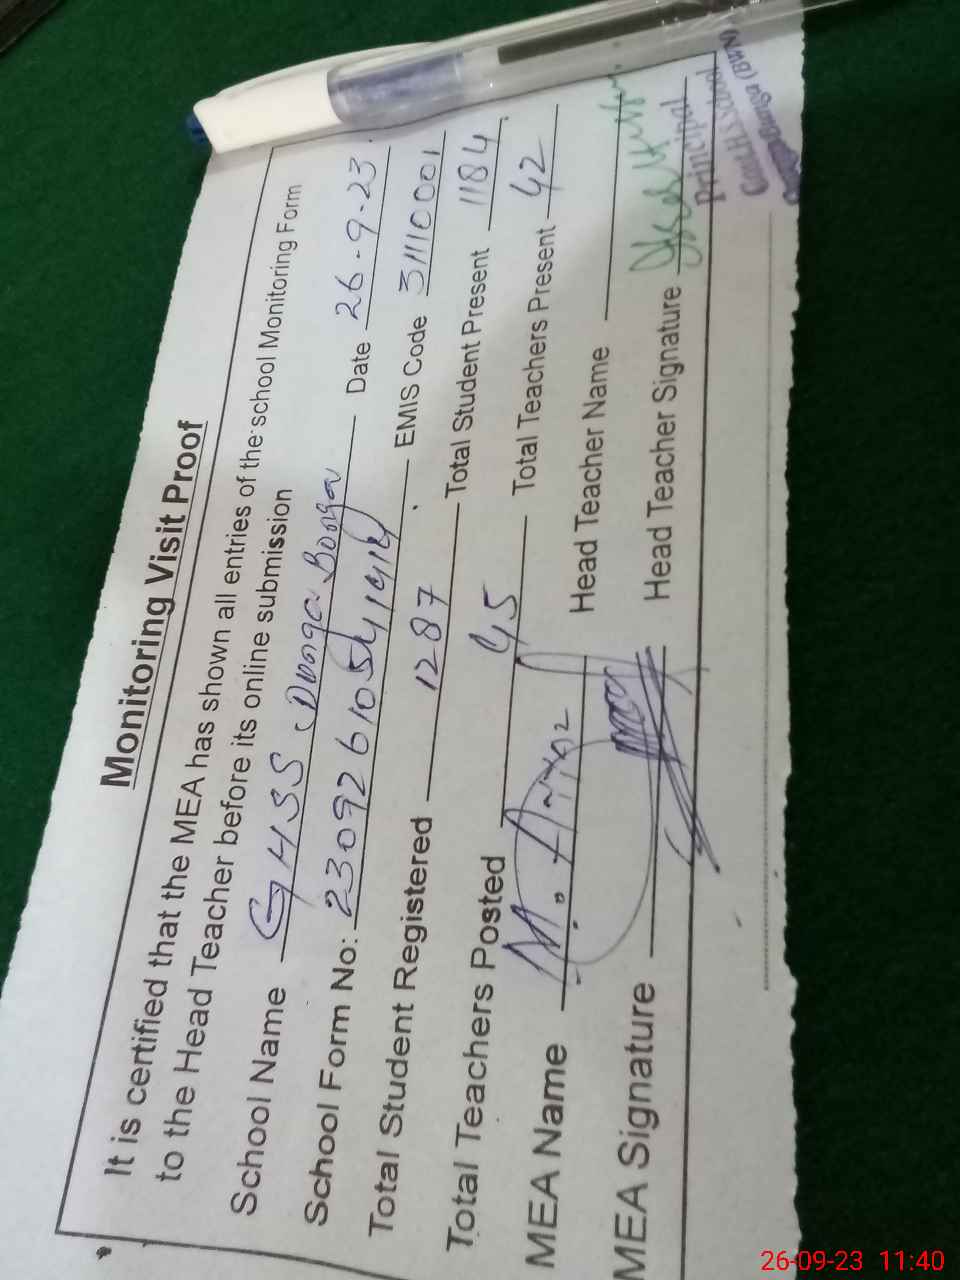 Monitoring Visit Proof
It is certified that the MEA has shown all entries of the school Monitoring Form
to the Head Teacher before its online submission
School Name GHSS Dunga Bonga Date 26-9-23
School Form No: EMIS Code 31110001
Total Student Registered 1287 Total Student Present 1184
Total Teachers Posted 45 Total Teachers Present 42
MEA Name Head Teacher Name
MEA Signature Head Teacher Signature
Principal
26-09-23 11:40